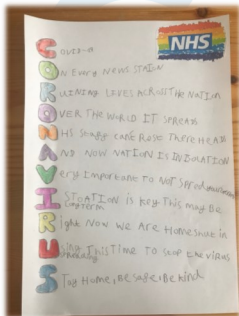 NHS
COVID-19
ON Every NEWS STATION
RUINING LIVES ACROSS THE NATION
OVER THE WORLD IT SPREADS
NHS can't Rest There HEADS
AND NOW NATION IS IN ISOLATION
Very Important to NOT Spread
ISOLATION is Key This may Be
Longterm
Right Now We Are Home shut in
Using This Time To stop the virus
Stay Home, Be safe, Be kind